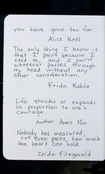 you have gone too far.
Alice Neel
The only thing I know is
that I paint because I
need to, and I paint
whatever passes through
my head without any
other consideration.
Frida Kahlo
Life shrinks or expands
in proportion to one's
courage.
Anaïs Nin
Nobody has measured,
not even poets, how much
the heart can hold.
Zelda Fitzgerald